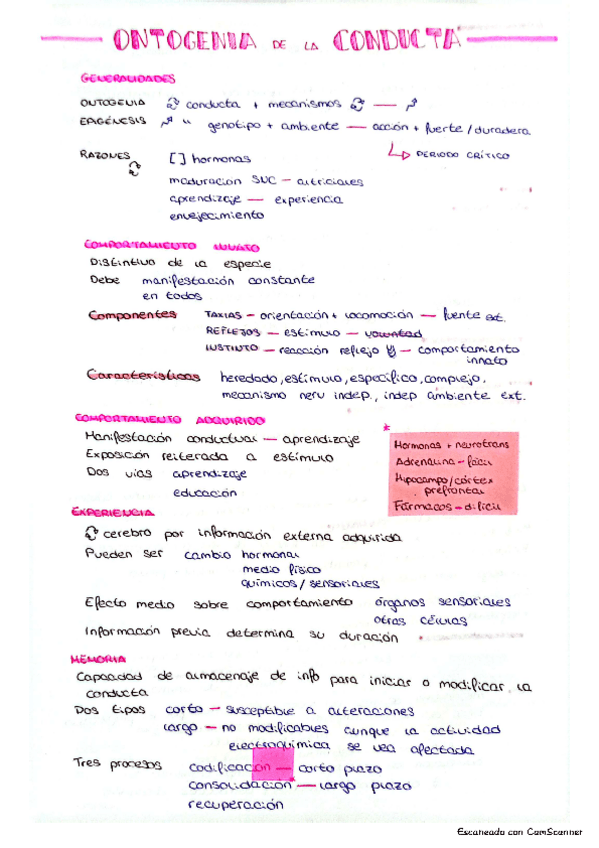 ONTOGENIA DE LA CONDUCTA
GENERALIDADES
ONTOGENIA conducta + mecanismos —
EPIGÉNESIS " genotipo + ambiente — acción + fuerte / duradera
PERIODO CRÍTICO
RAZONES [ ] hormonas
maduración SNC — nutricionales
aprendizaje — experiencia
envejecimiento
COMPORTAMIENTO INNATO
Distintivo de la especie
Debe manifestación constante
en todos
Componentes TAXIAS — orientación + locomoción — fuente ext.
REFLEJOS — estímulo — voluntad
INSTINTO — reacción reflejo — comportamiento
innato
Características heredado, estímulo, específico, complejo,
mecanismo nerv indep., indep ambiente ext.
COMPORTAMIENTO ADQUIRIDO
Manifestación conductual — aprendizaje
Exposición reiterada a estímulo
Dos vías aprendizaje
educación
*
Hormonas + neurotrans
Adrenalina — fácil
Hipocampo / córtex
prefrontal
Fármacos — difícil
EXPERIENCIA
cerebro por información externa adquirida
Pueden ser cambio hormonal
medio físico
químicos / sensoriales
Efecto medio sobre comportamiento órganos sensoriales
otras células
Información previa determina su duración
MEMORIA
Capacidad de almacenaje de info para iniciar o modificar la
conducta
Dos tipos corto — susceptible a alteraciones
largo — no modificables aunque la actividad
electroquímica se vea afectada
Tres procesos codificación — corto plazo
consolidación — largo plazo
recuperación
Escaneado con CamScanner